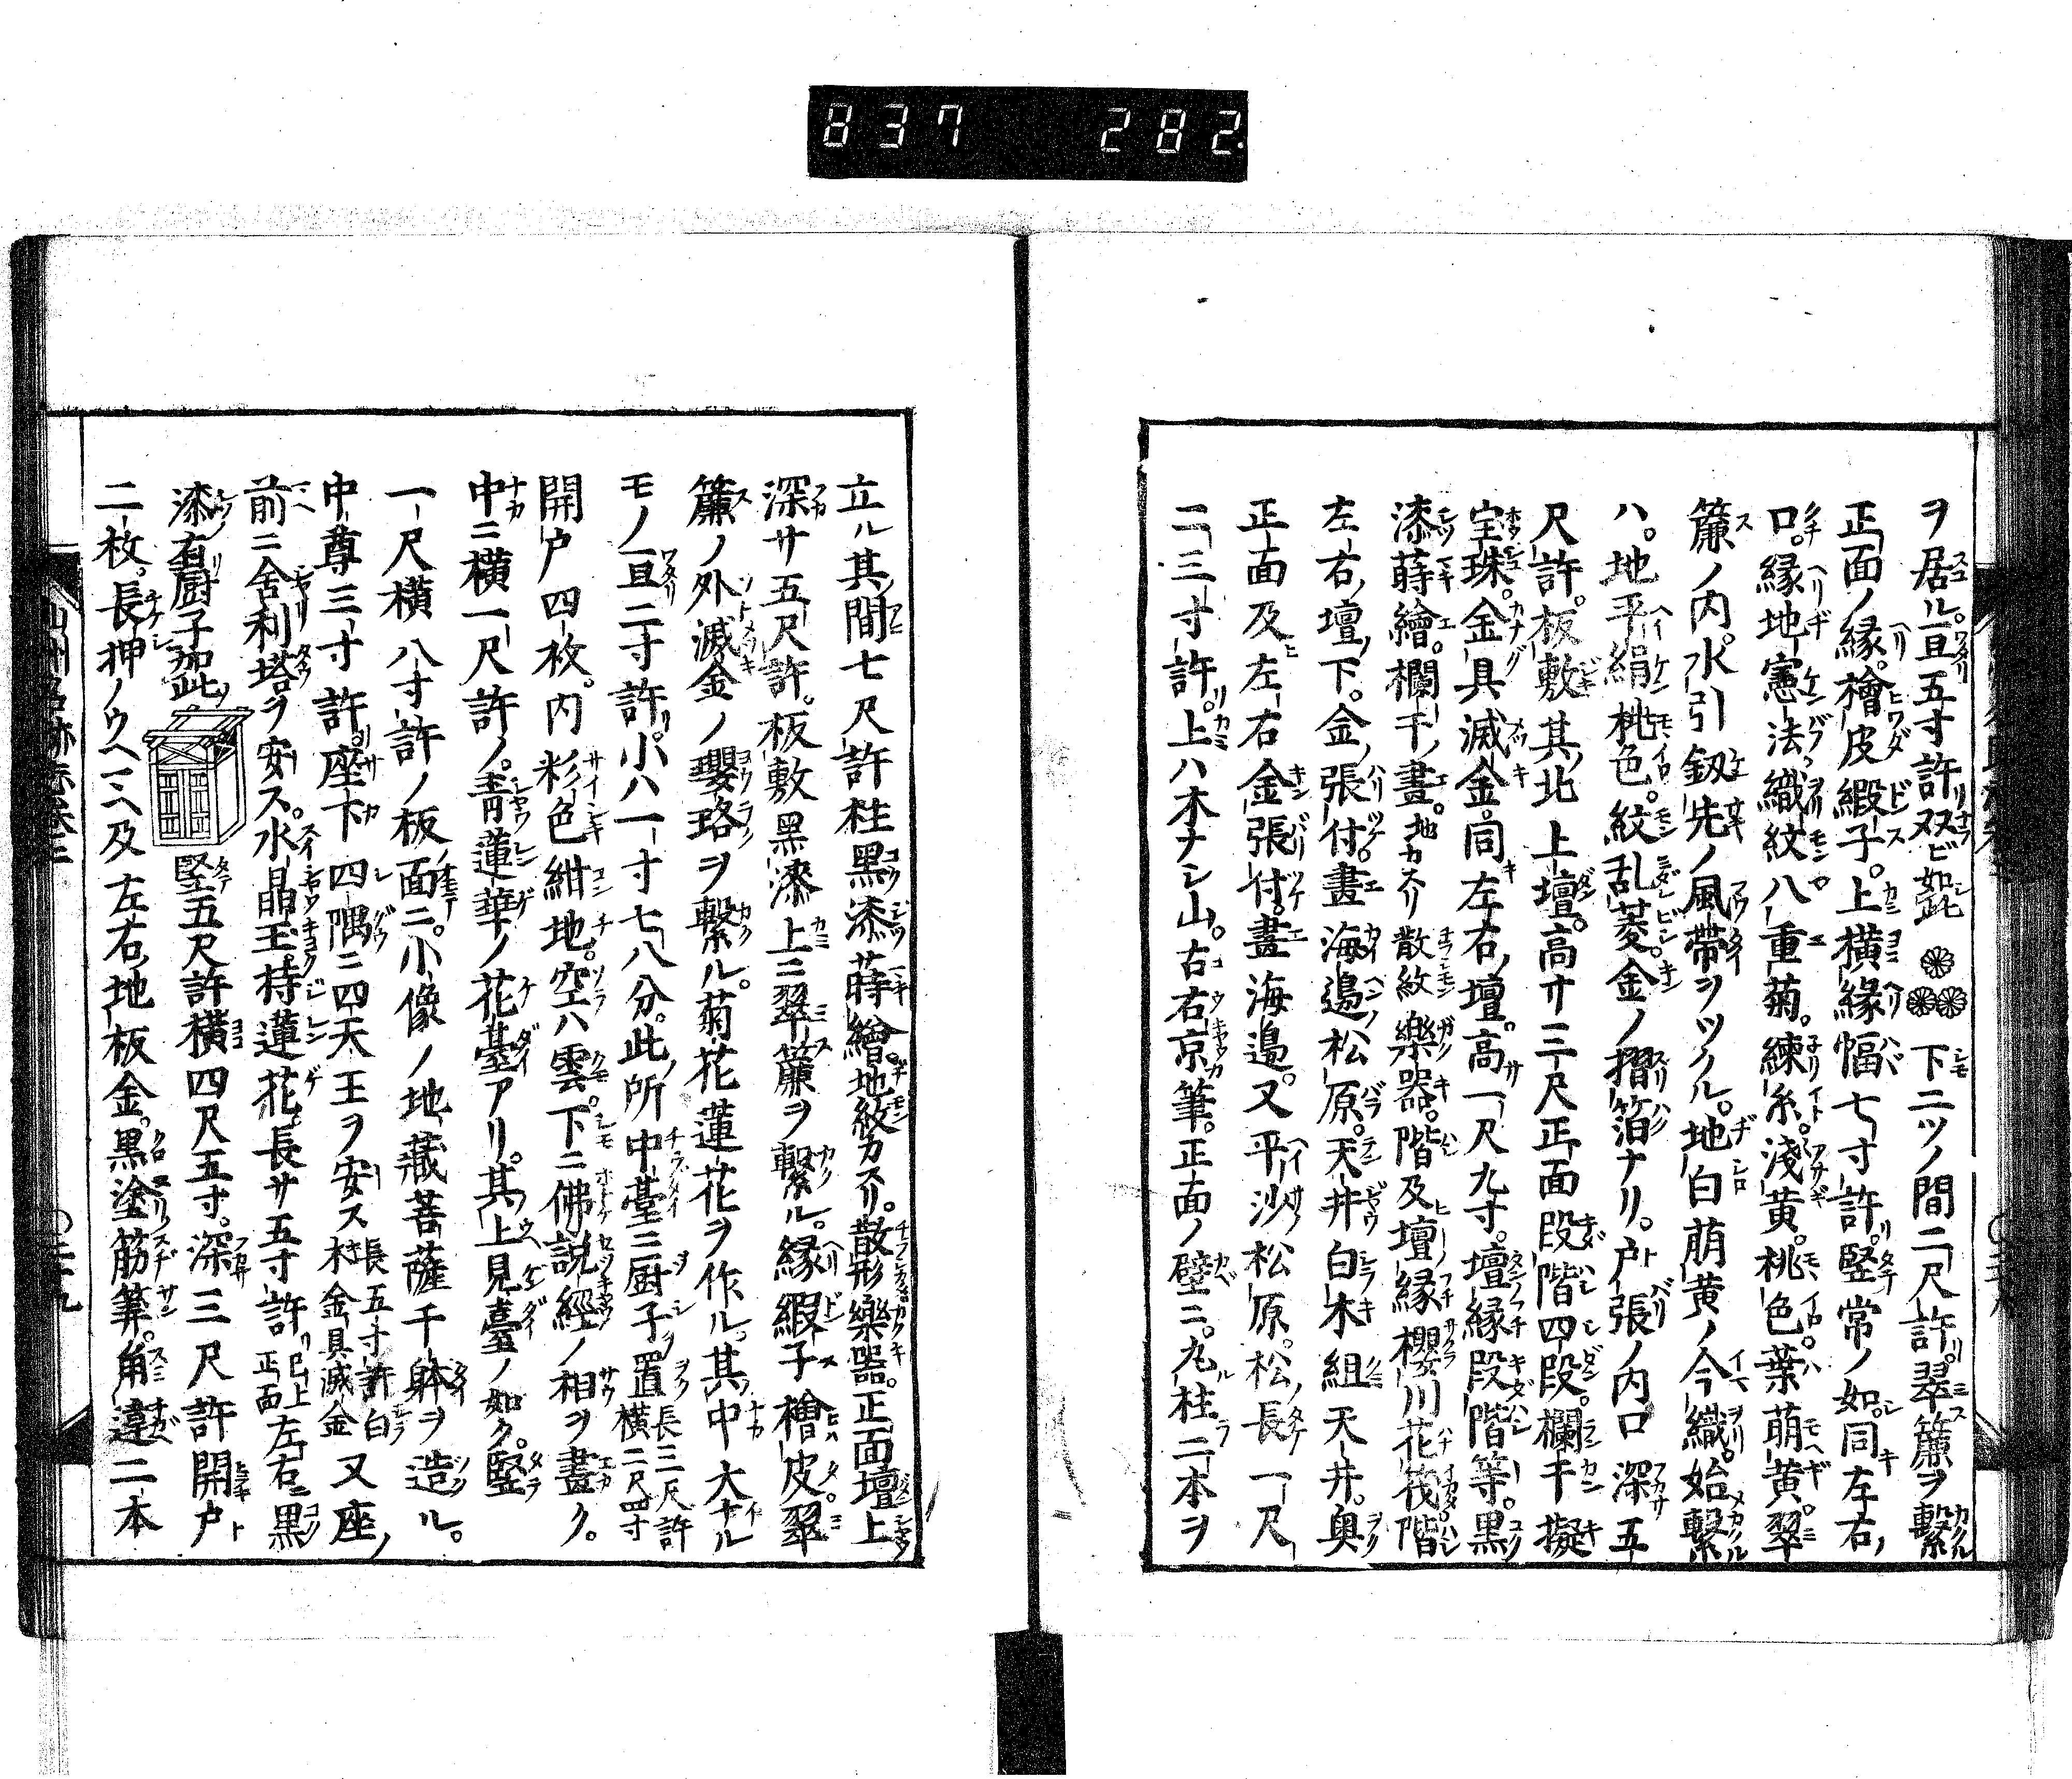 837 282
ヲ居ル。亘五寸許双ビ如此 下二ツノ間二尺許翠簾ヲ繋
正面ノ縁。檜皮緞子。上横縁幅七寸許。竪常ノ如。同左右ノ
口。縁地憲法織紋八重菊。練糸。淺黄。桃色。葉萌黄。翠
簾ノ内。水引釼先ノ風帶ヲツクル。地白萠黄ノ今織。始繋
ハ。地平絹桃色。紋乱菱。金ノ摺箔ナリ。戸張ノ内口深五
尺許。板敷其北上壇。高サ三尺正面段階四段。欄干擬
宝珠。金具滅金。同左右ノ壇。高一尺九寸。壇縁段階等。黒
漆蒔繪。欄干ノ畫。地カスリ散紋樂器。階及壇縁櫻川花筏階
左右ノ壇ノ下。金ノ張付。畫海邉松原。天井白木組天井。奥
正面及左右金張付。畫海邉。又平沙松原。松ノ長一尺
二三寸許。上ハ木ナシ山。古右京筆。正面ノ壁ニ。丸柱二本ヲ
立ル其ノ間七尺許柱黒漆蒔繪地紋カスリ。散形樂器。正面壇上
深サ五尺許。板敷黒漆上ニ翠簾ヲ繋ル。縁緞子檜皮翠
簾ノ外滅金ノ瓔珞ヲ繋ル。菊花蓮花ヲ作ル。其中大ナル
モノ亘二寸許。小ハ一寸七八分。此ノ所中臺ニ厨子ヲ置長三尺許横二尺四寸
開戸四枚。内彩色紺地。空ハ雲。下ニ佛説經ノ相ヲ畫ク。
中ニ横一尺許ノ。青蓮華ノ花臺アリ。其上見臺ノ如ク。竪
一尺横八寸許ノ板面ニ。小像ノ地藏菩薩千躰ヲ造ル。
中尊三寸許。座下四隅ニ四天王ヲ安ス長五寸許白木金具滅金又座ノ
前ニ舍利塔ヲ安ス。水晶玉。持蓮花。長サ五寸許已上正面左右ニ黒
漆有厨子如此 竪五尺許横四尺五寸。深三尺許開戸
二枚。長押ノウヘニヘ及左右ノ地板金。黒塗筋筭。角違二本